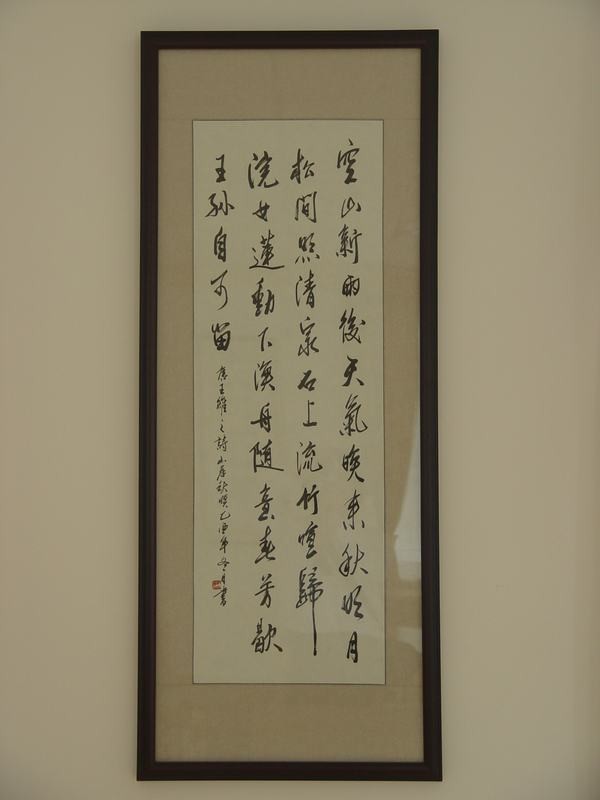 空山新雨後天氣晚來秋明月
松間照清泉石上流竹喧歸
浣女蓮動下漁舟隨意春芳歇
王孫自可留
唐王維之詩山居秋暝乙酉年冬月書